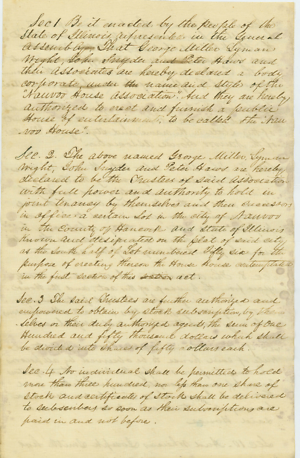 Sec 1 Be it enacted by the People of the
State of Illinois, represented in the General
Assembly, That George Miller Lyman
Wight, John Snyder and Peter Haws and
their associates are hereby declared a body
corporate under the name and style of the
"Nauvoo House Association" And they are hereby
authorized to erect and furnish a public
House of entertainment, to be called the "Nau-
voo House".
Sec. 2. The above named George Miller, Lyman
Wight, John Snyder and Peter Haws are hereby
declared to be the Trustees of said association
with full power and authority to hold in
joint tenancy by themselves and their successors
in office a certain Lot in the city of Nauvoo
in the County of Hancock and State of Illinois
known and designated on the plat of said city
as the South half of Lot numbered fifty six for the
purpose of erecting thereon the House
in the first section of this act.
Sec. 3 The said Trustees are further authorized and
empowered to obtain by stock subscription by them
selves or their duly authorized agents, the sum of One
Hundred and fifty thousand dollars which shall
be divided into shares of fifty dollars each.
Sec. 4. No individual shall be permitted to hold
more than three hundred, nor less than one share of
stock and certificates of stock shall be delivered
to subscribers so soon as their subscriptions are
paid in and not before.